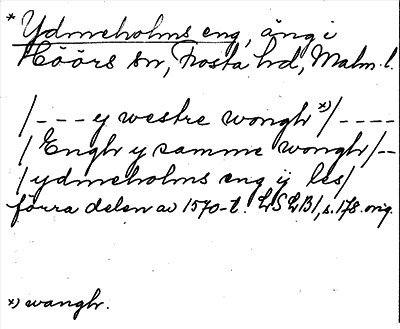 * Ydmeholms eng, äng i
Höörs sn, Frosta hd, Malm. l.
/--- y westre wongh *)/----
/Enghr y samme wonghr/--
/ydmeholms eng ij les/
förra delen av 1570-t. LSLB1, s. 178. orig.
*) wanghr.